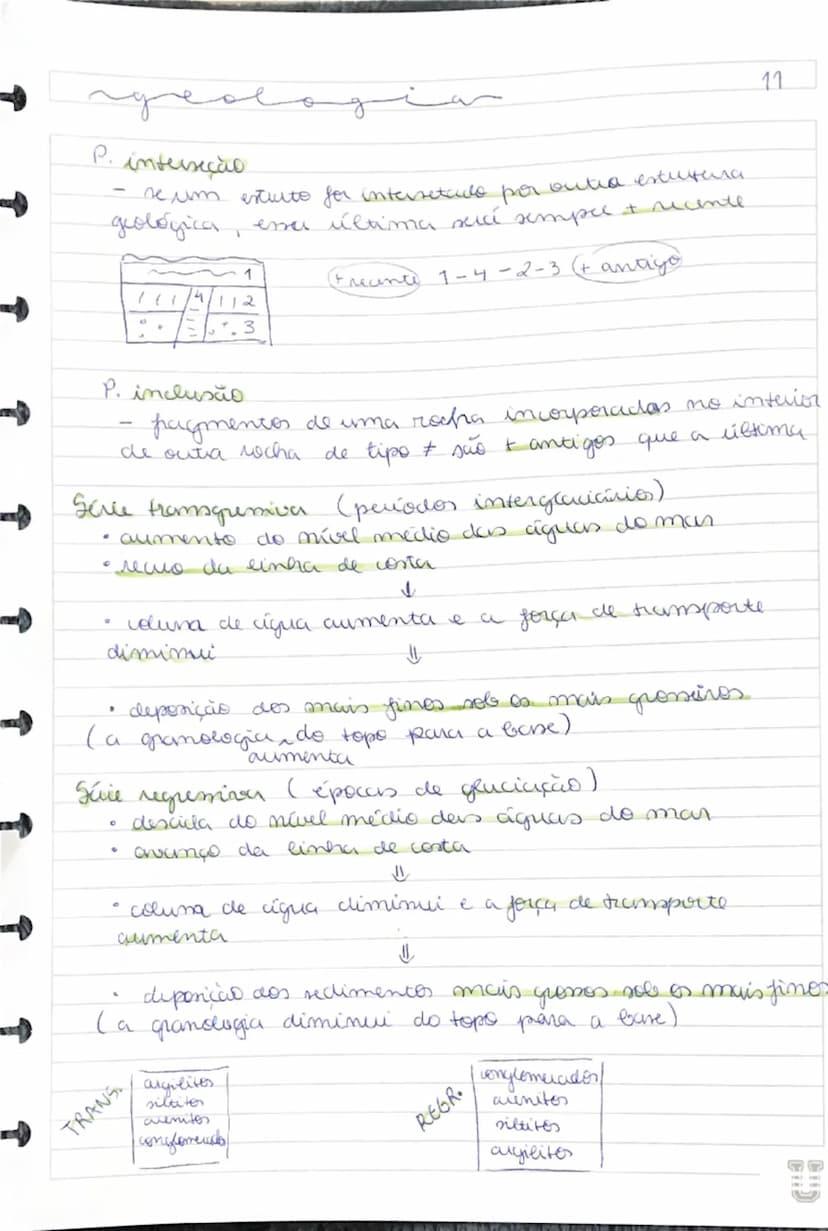 11
geologia
P. interseção
- se um estrato for intersetado por outra estrutura
geológica, essa última será sempre + recente
1
4 2
3
+ recente 1-4-2-3 + antigo
P. inclusão
- fragmentos de uma rocha incorporados no interior
de outra rocha de tipo ≠ são + antigos que a última
Série transgressiva (períodos interglaciários)
• aumento do nível médio das águas do mar
• recuo da linha de costa
↓
• coluna de água aumenta e a força de transporte
diminui ⇓
• deposição dos mais finos sob os mais grosseiros
(a granologia ^ do topo para a base)
aumenta
Série regressiva (épocas de glaciação)
• descida do nível médio das águas do mar
• avanço da linha de costa
⇓
• coluna de água diminui e a força de transporte
aumenta
⇓
• deposição dos sedimentos mais grossos sob os mais finos
(a granologia diminui do topo para a base)
TRANS.
argilitos
siltitos
arenitos
conglomerado
REGR.
conglomerados
arenitos
siltitos
argilitos